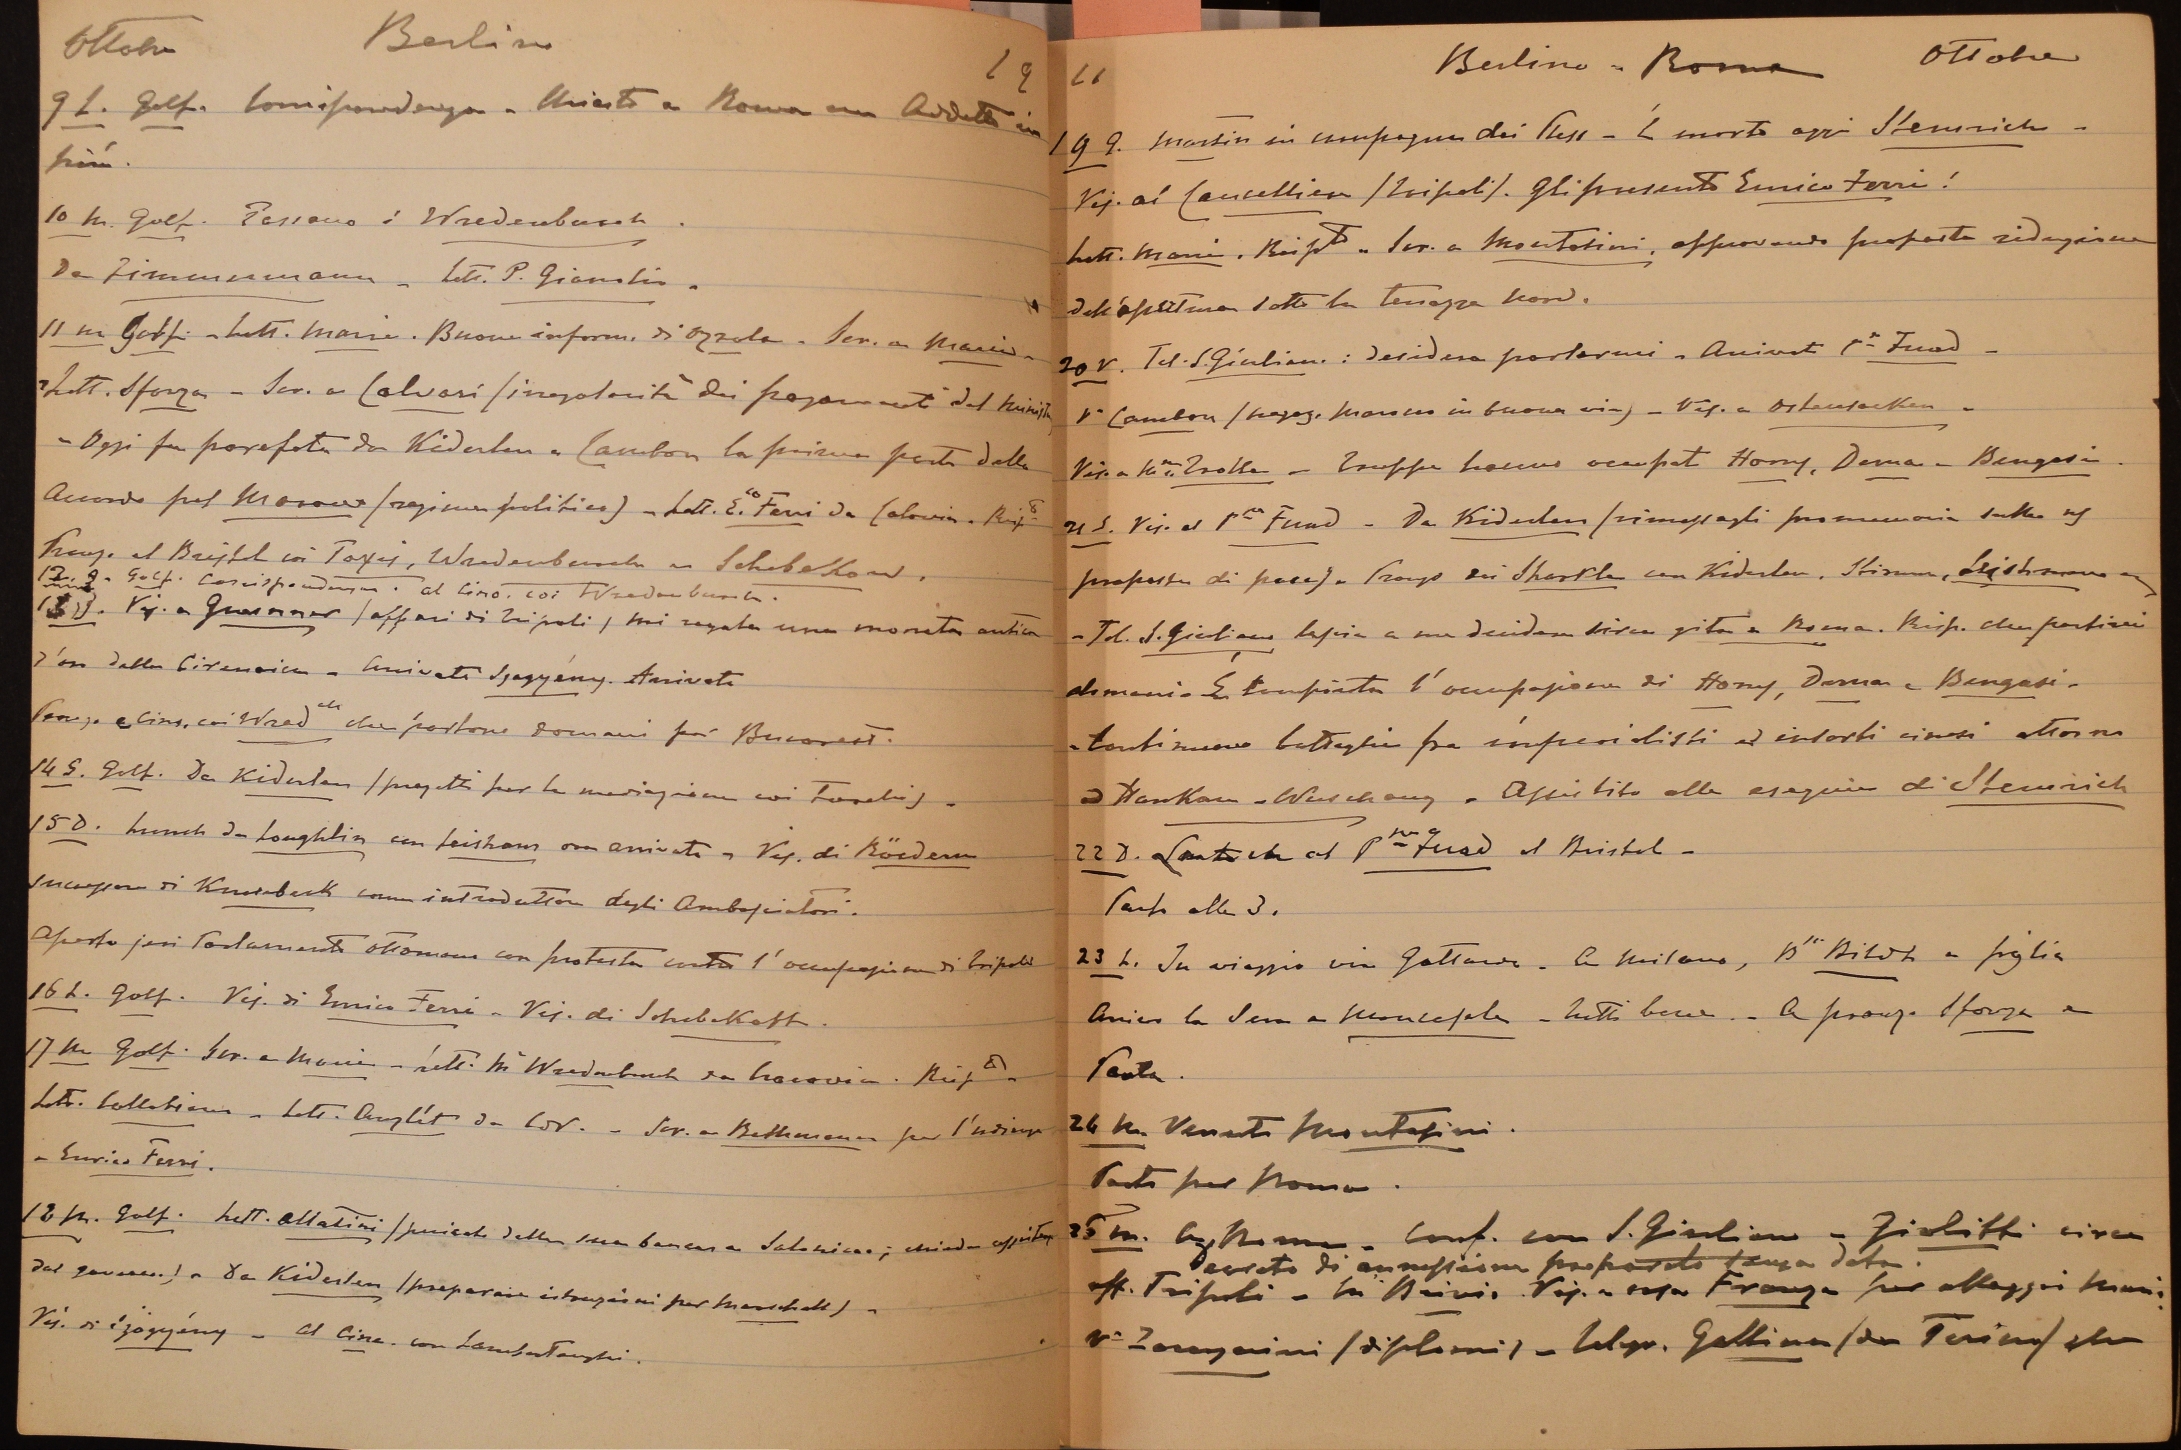 Ottobre Berlino 19
9 L. Golf. Corrispondenza - Chiesto a Roma un Addetto in
più.
10 M. Golf. Passano i Wredenbursch.
Da Zimmermann - Lett. P. Gianolio -
11 M Golf - Lett. Maria. Buone inform. di Ozzola - Scr. a Maria -
Lett. Sforza - Scr. a Calvari (irregolarità dei pagamenti del Minist.)
- Oggi fu parafata da Kiderlen e Cambon la prima parte dello
Accordo pel Marocco (regime politico) - Lett. E.co Ferri da
Pranzo al Bristol coi Taxis, Wredenbursch e Schebekow.
12. G. Golf. Corrispondenza. Al Cino. coi Wredenbursch.
13 V. Vis. a Grunner (affari di Tripoli, mi regala una moneta antica
d'oro della Cirenaica - Arrivato Szögyény. Arrivata
Pranzo e Cino. coi Wred.ch che partono domani per Bucarest.
14 S. Golf. Da Kiderlen (progetti per la mediazione coi Turchi) -
15 D. Lunch da Loughlin con Leishman ora arrivato - Vis. di Röedern
successore di Knesebeck come introduttore degli Ambasciatori.
Aperto jeri Parlamento ottomano con protesta contro l'occupazione di Tripoli
16 L. Golf. Vis. di Enrico Ferri - Vis. di Schebekoff.
17 M Golf. Scr. a Maria - Lett. M.a Wredenbursch da Cracovia. Risp.
Lett. Collobiano - Lett. da - Scr. a Bethmann per l'udienza
a Enrico Ferri.
18 M. Golf. Lett. Allatini (pericoli della sua banca a Salonicco; chiede
dal governo.) - Da Kiderlen (preparare istruzioni per Marschall) -
Vis. di Szögyény - Al Cine. con Lambertenghi.
11 Berlino - Roma Ottobre
19 G. Martin in campagna dai Pless - È morto oggi Stemrich -
Vis. al Cancelliere (Tripoli). Gli presento Enrico Ferri!
Lett. Maria. Risp. - Scr. a Montesini, approvando proposta riduzione
dell'apertura sotto la terrazza nord.
20 V. Tel. S. Giuliano: desidera parlarmi - Arrivati P.ssa Fuad -
V.a Cambon (negoz. Marocco in buona via) - Vis. a Ostensacken -
Vis. a Trotha - Truppe hanno occupato Homs, Derna e Bengasi.
21 S. Vis. al P.pe Fuad - Da Kiderlen (rimessagli promemoria sulle ns
proposte di pace) - Pranzo dai con Kiderlen. Stirum, Leishmann
- Tel. S. Giuliano lascia a me decidere circa gita a Roma. Risp. che partirei
domani - È compiuta l'occupazione di Homs, Derna e Bengasi -
- Continuano battaglie fra imperialisti ed insorti cinesi attorno
a Hankau - Wuschang - Assistito alle esequie di Stemrich
22 D. al P.pe Fuad al Bristol -
Parto alle 3.
23 L. In viaggio via Gottardo - A Milano, B.n Bildt e figlia
Arrivo la sera a Moncasale - tutti bene. - A pranzo Sforza e
Paola.
24 M. Venuto Montesini.
Parto per Roma.
25 M. A Roma - Conf. con S. Giuliano - Giolitti circa
Decreto di annessione proposto senza data.
aff. Tripoli - Vis. a casa Franza per alloggi
V.a Zanganini (diplomi) - Telegr. Gallina (da Torino) che